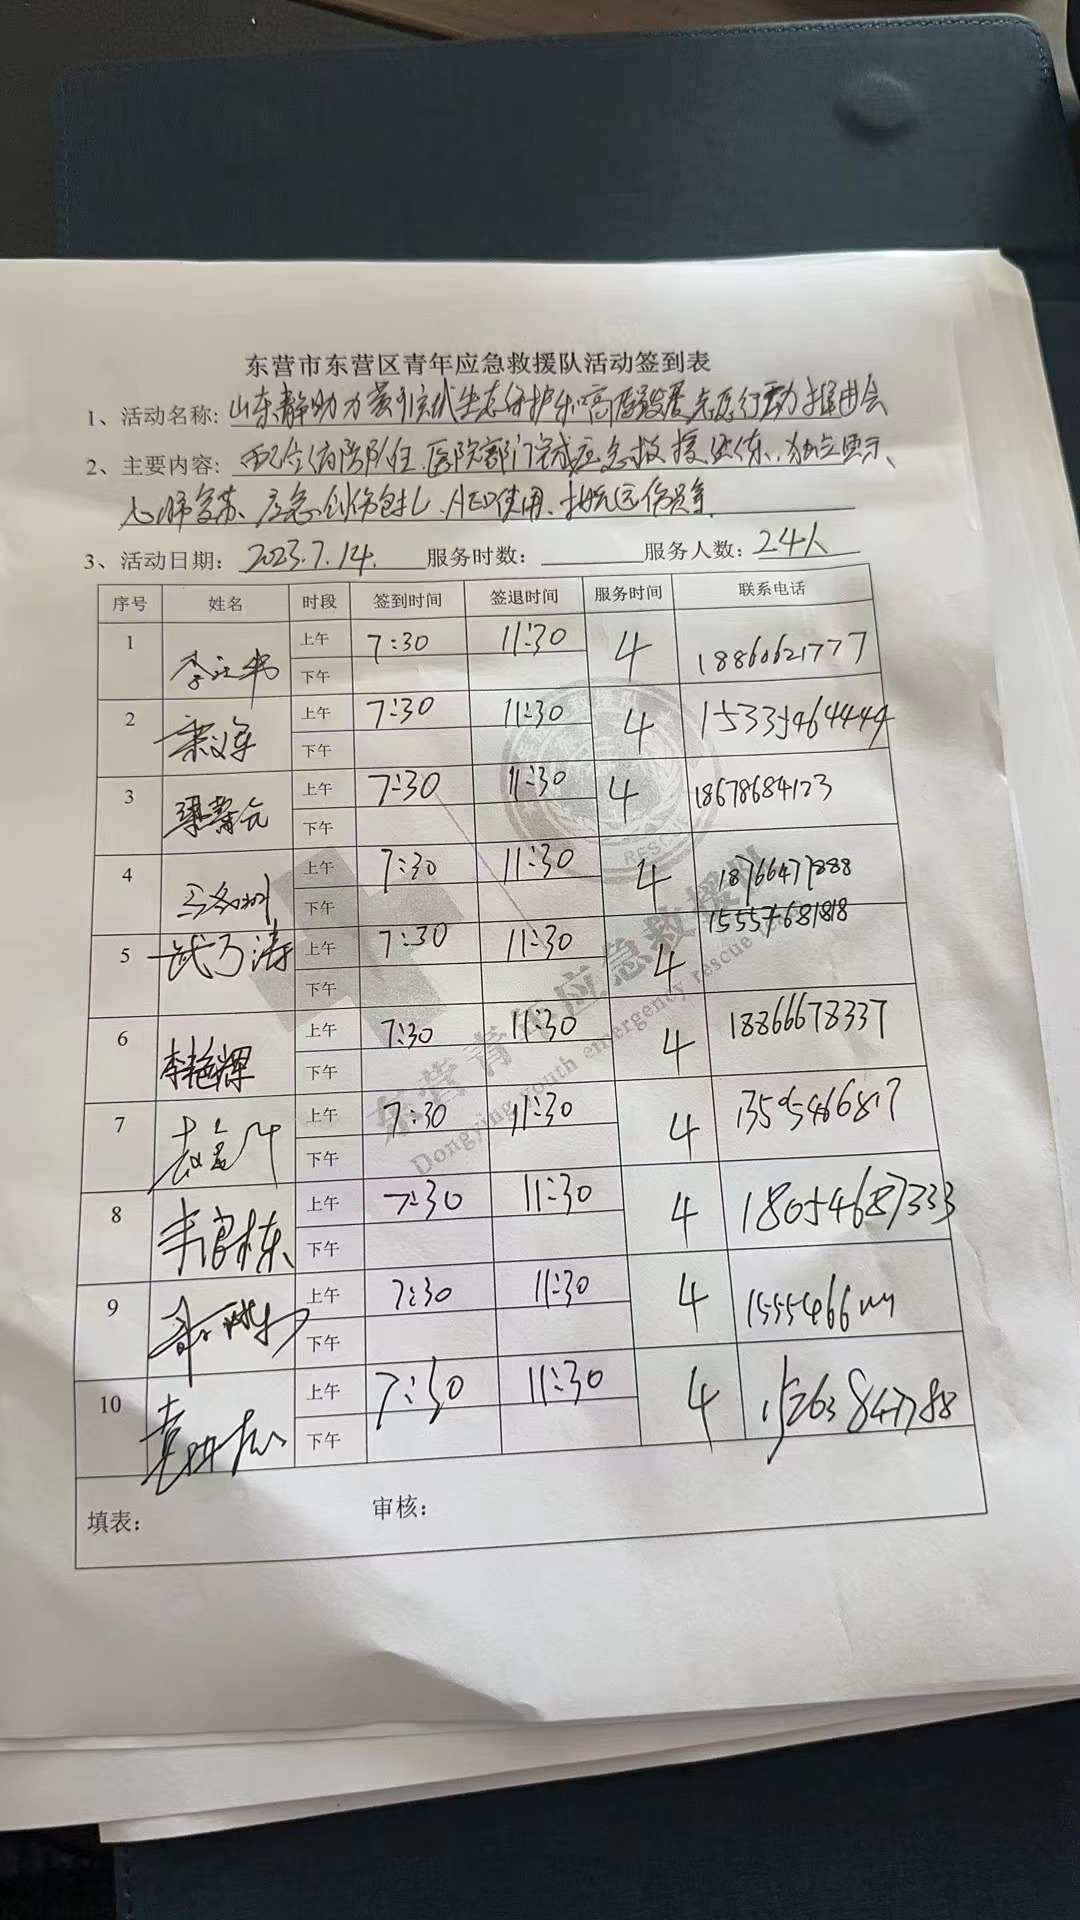 东营市东营区青年应急救援队活动签到表
1、活动名称: 山东静助力黄河流域生态保护和高质量发展志愿行动推进会
2、主要内容: 配合消防队伍、医院部门完成应急救援演练、
心肺复苏、应急创伤包扎、AED使用、
3、活动日期: 2023.7.14. 服务时数: 服务人数: 24人
序号 姓名 时段 签到时间 签退时间 服务时间 联系电话
1 上午 7:30 11:30 4 18860621777
下午
2 上午 7:30 11:30 4 15335464444
下午
3 上午 7:30 11:30 4 18678684123
下午
4 上午 7:30 11:30 4 18766477888
下午
5 武乃涛 上午 7:30 11:30 4 15557681818
下午
6 李艳辉 上午 7:30 11:30 4 18866678337
下午
7 上午 7:30 11:30 4
下午
8 李良栋 上午 7:30 11:30 4 18054687333
下午
9 上午 7:30 11:30 4
下午
10 上午 7:30 11:30 4 15263847788
下午
填表: 审核:
RESCUE
东营青年应急救援队
Dongying youth emergency rescue team